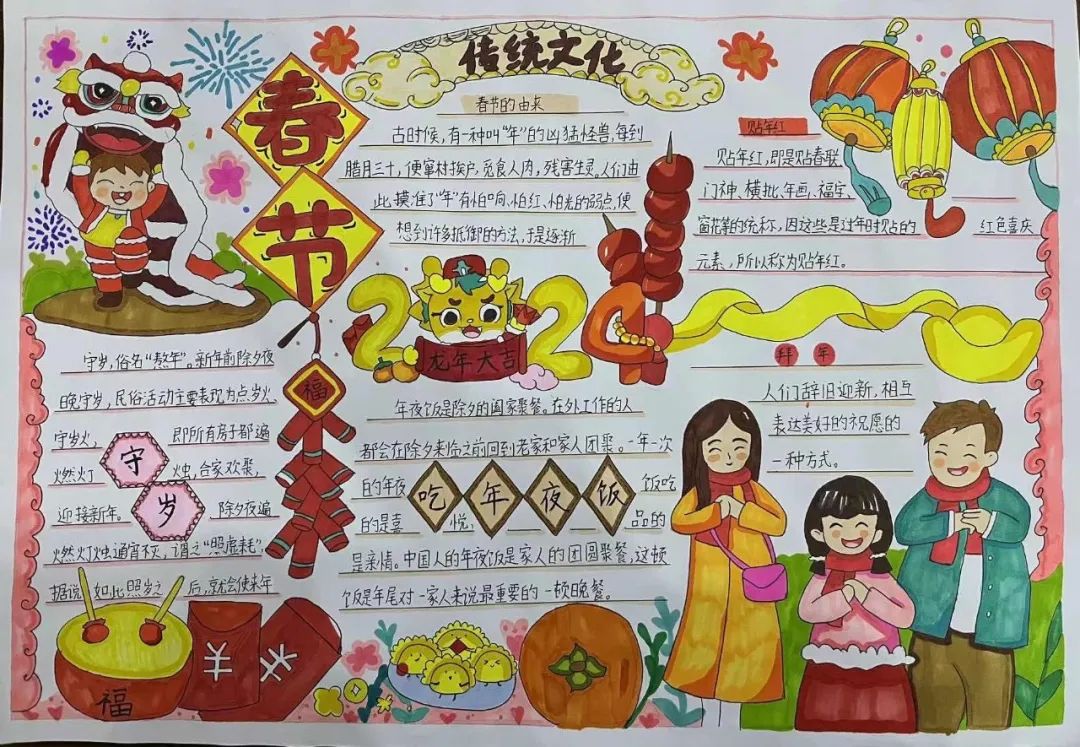 传统文化
春节
春节的由来
古时候,有一种叫“年”的凶猛怪兽,每到
腊月三十,便窜村挨户,觅食人肉,残害生灵。人们由
此摸准了“年”有怕响、怕红、怕光的弱点,便
想到许多抵御的方法,于是逐渐
贴年红
贴年红,即是贴春联
门神、横批、年画、福字、
窗花等的统称,因这些是过年时贴的 红色喜庆
元素,所以称为贴年红。
2024
龙年大吉
福
守岁,俗名“熬年”。新年前除夕夜
晚守岁,民俗活动主要表现为点岁火、
守岁火, 即所有房子都遍
燃灯 烛,合家欢聚,
迎接新年。 除夕夜遍
燃灯烛通宵不灭,谓之“照虚耗”,
据说 如此照岁之 后,就会使来年
守岁
年夜饭是除夕的阖家聚餐。在外工作的人
都会在除夕来临之前回到老家和家人团聚。一年一次
的年夜 饭吃
的是喜 悦, 品的
是亲情。中国人的年夜饭是家人的团圆聚餐,这顿
饭是年尾对一家人来说最重要的一顿晚餐。
吃年夜饭
拜年
人们辞旧迎新,相互
表达美好的祝愿的
一种方式。
福